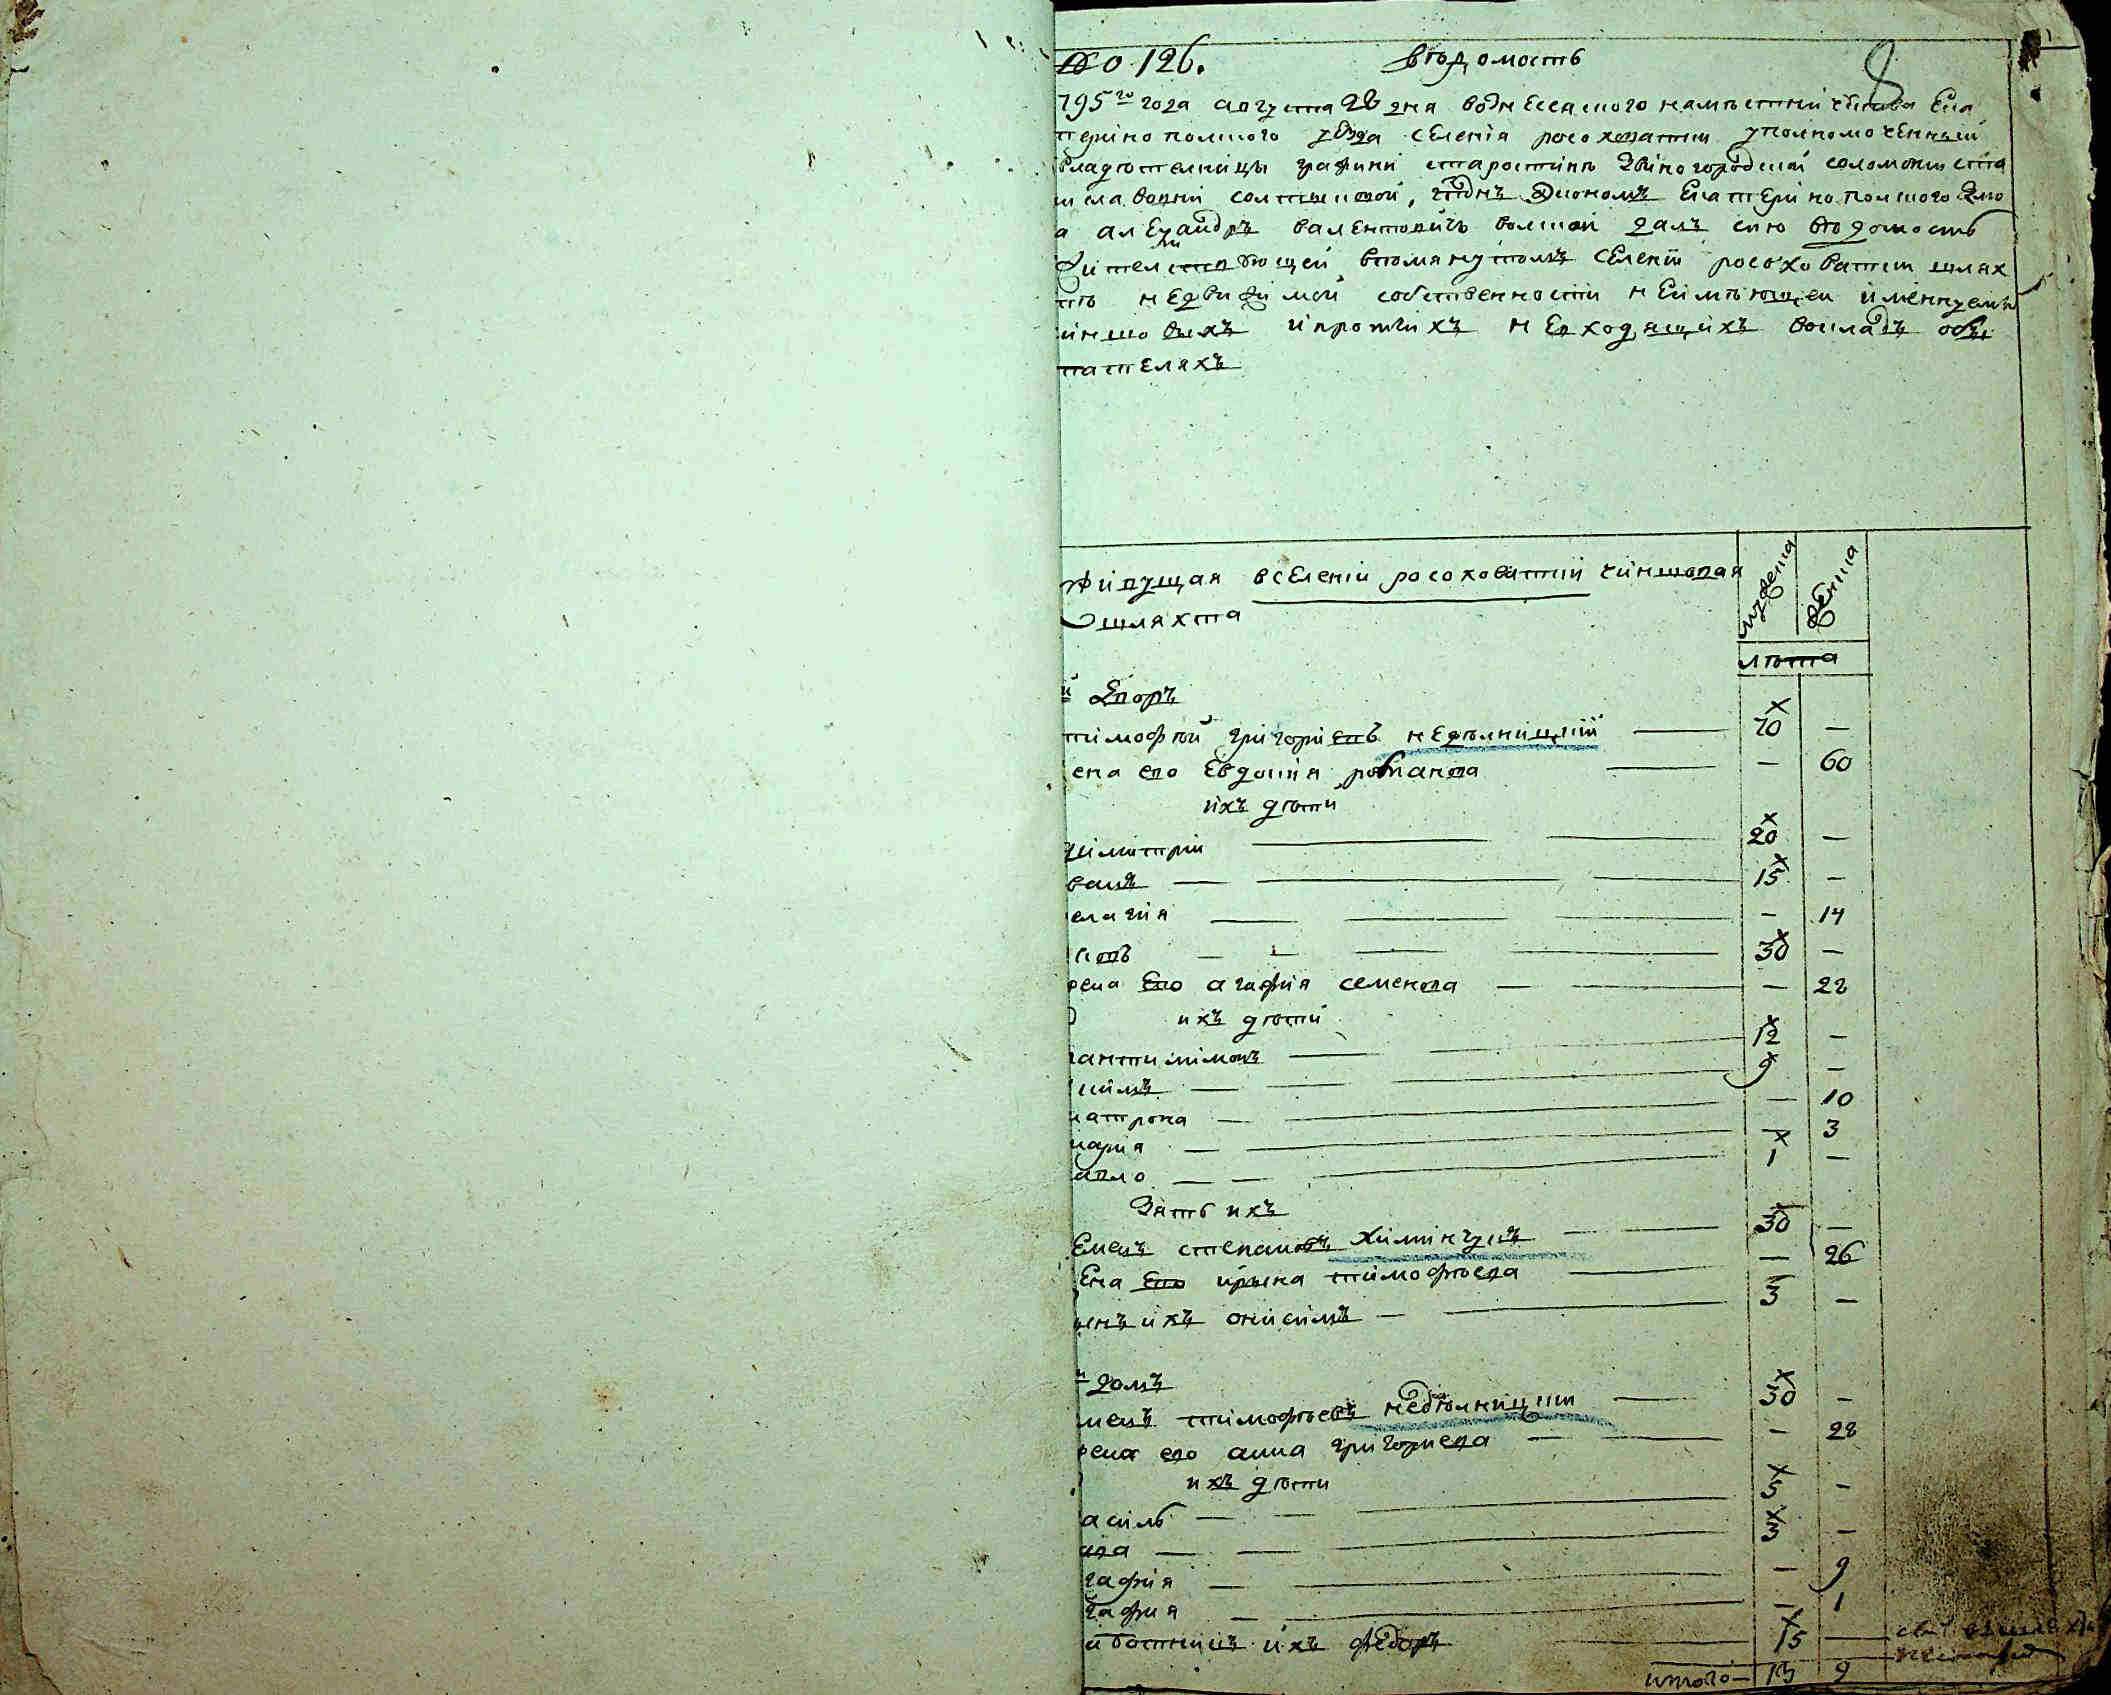 № 126. Вѣдомость 8
795го года августа 26 дня вознесенского намѣстничества Ека
теринополского уѣзда селенія росоховатки уполномоченный
владѣтелницы графини старостины Звиногородской соломеи ста
алеѯандръ валентовичь далъ сию вѣдомость
жителствующей впомянутомъ селеніи росоховатки шлях
тѣ недвижимой собственности неимѣющеи именуемы
иншовыхъ и протчихъ невходящихъ вокладъ обы
вателяхъ
живущая вселеніи росоховатки чиншовая мужеска женска
шляхта
лѣта
й Дворъ
тимофѣй григориевъ недѣлницкій — 70 —
ена его Евдокия романова — — 60
ихъ дѣти
димитрій — 20 —
ванъ — 15 —
елагия — — 14
30 —
жена Его агафия семенова — — 22
ихъ дѣти
антилимонъ — 12 —
кимъ — 9 —
матрона — — 10
мария — — 3
авло — 1 —
Зять ихъ
Семенъ степановъ химинчукъ — 30 —
Ена Его ирына тимофѣева — — 26
ынъ ихъ онисимъ — 3 —
й домъ
тимофѣевъ недѣлницкій — 30 —
жена его анна григориева — — 22
ихъ дѣти
асиль — 5 —
3 —
гафия — — 9
гафия — — 1
аботникъ ихъ федоръ — 15 —
итого — 13 9